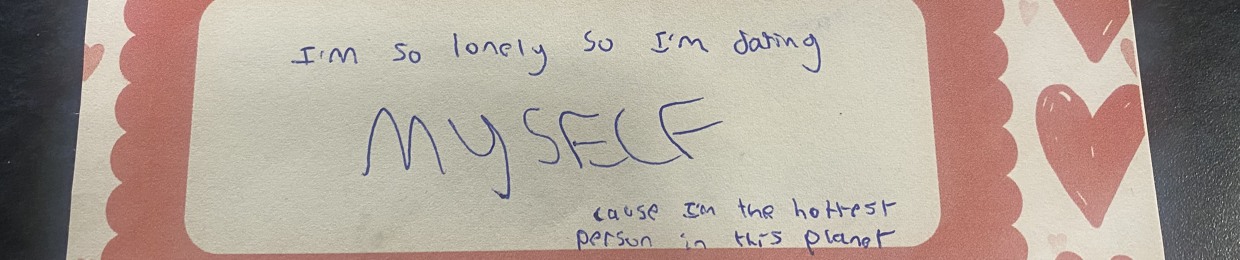 I'm so lonely so I'm dating
MYSELF
cause I'm the hottest
person in this planet